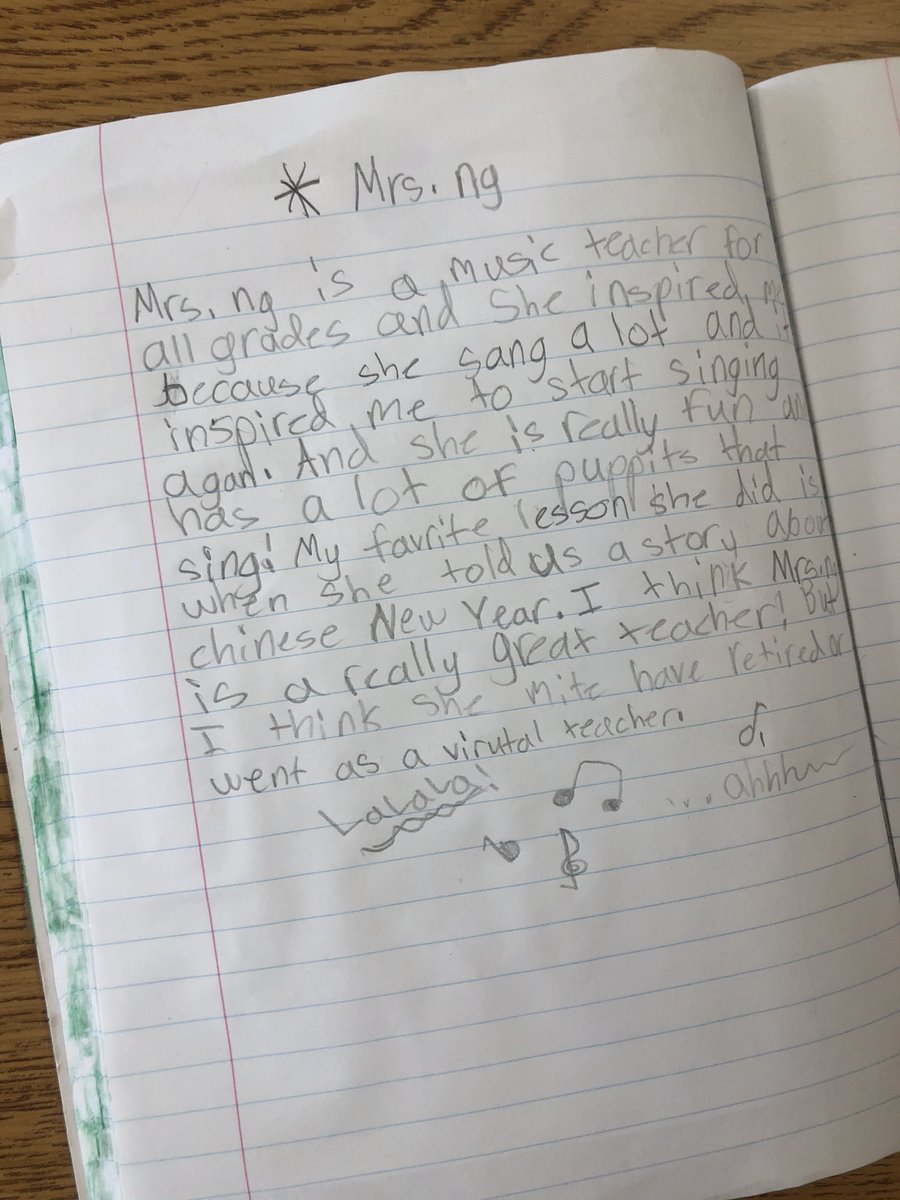 * Mrs. ng
Mrs. ng is a music teacher for
all grades and she inspired me
because she sang a lot and it
inspired me to start singing
agan. And she is really fun an
has a lot of puppits that
sing! My favrite lesson she did is
when she told us a story abou
chinese New Year. I think Mrs. n
is a really great teacher! But
I think she mite have retired or
went as a virutal teacher.
LaLaLa!
... ahhh